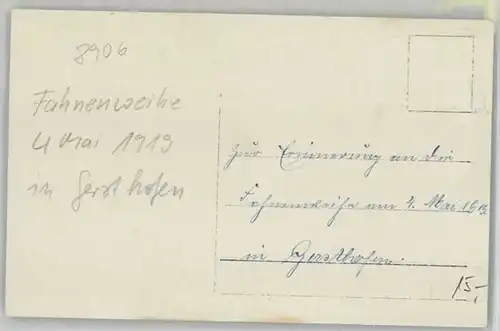 8906
Fahnenweihe
4 Mai 1919
in Gersthofen
Zur Erinnerung an die
Fahnenweihe am 4. Mai 1919.
in Gersthofen.
15,-